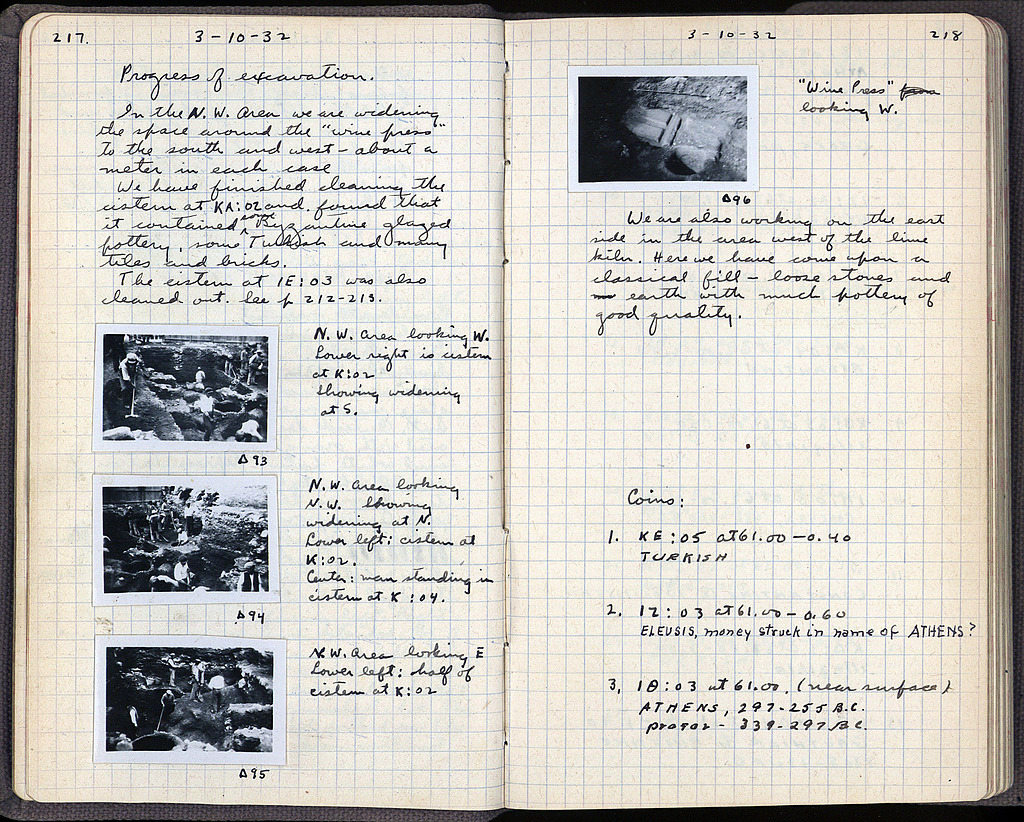 217.
3-10-32
Progress of excavation.
In the N.W. Area we are widening
the space around the "wine press"
to the south and west - about a
meter in each case
We have finished cleaning the
cistern at KA:02 and found that
it contained some Byzantine glazed
pottery, some Turkish and many
tiles and bricks.
The cistern at IE:03 was also
cleaned out. See p 212-213.
N.W. Area looking W.
Lower right is cistern
at K:02
Showing widening
at S.
Δ93
N.W. Area looking
N.W. Showing
widening at N.
Lower left: cistern at
K:02.
Center: man standing in
cistern at K:04.
Δ94
N.W. Area looking E
Lower left: half of
cistern at K:02
Δ95
3-10-32
218
"Wine Press"
looking W.
Δ96
We are also working on the east
side in the area west of the lime
kiln. Here we have come upon a
classical fill - loose stones and
earth with much pottery of
good quality.
Coins:
1. KE:05 at 61.00 - 0.40
TURKISH
2. IZ:03 at 61.00 - 0.60
ELEUSIS, money struck in name of ATHENS?
3. IΘ:03 at 61.00. (near surface)
ATHENS, 297-255 B.C.
339-297 B.C.